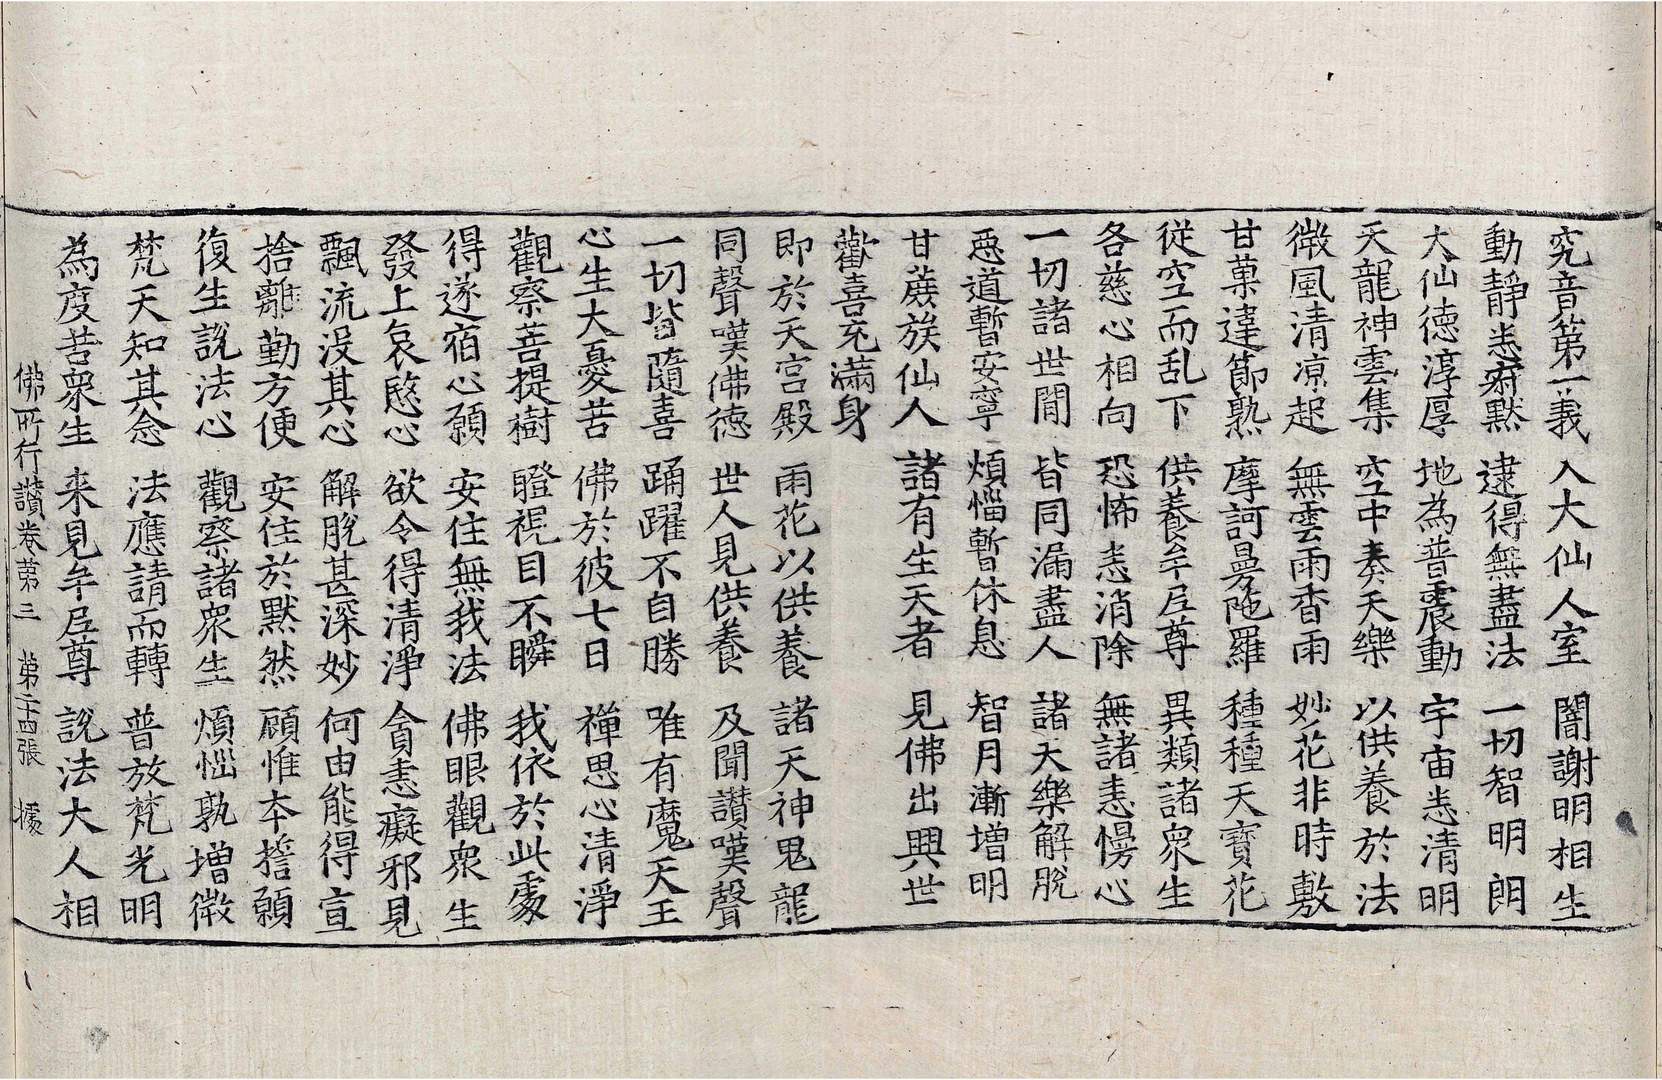 究竟第一義 入大仙人室 闇謝明相生
動靜悉寂默 逮得無盡法 一切智明朗
大仙德淳厚 地為普震動 宇宙悉清明
天龍神雲集 空中奏天樂 以供養於法
微風清凉起 無雲雨香雨 妙花非時敷
甘菓違節熟 摩訶曼陁羅 種種天寶花
從空而乱下 供養牟尼尊 異類諸衆生
各慈心相向 恐怖悉消除 無諸恚慢心
一切諸世間 皆同漏盡人 諸天樂解脫
惡道暫安寧 煩惱暫休息 智月漸增明
甘蔗族仙人 諸有生天者 見佛出興世
歡喜充滿身
即於天宮殿 雨花以供養 諸天神鬼龍
同聲嘆佛德 世人見供養 及聞讃嘆聲
一切皆隨喜 踊躍不自勝 唯有魔天王
心生大憂苦 佛於彼七日 禪思心清淨
觀察菩提樹 瞪視目不瞬 我依於此處
得遂宿心願 安住無我法 佛眼觀衆生
發上哀愍心 欲令得清淨 貪恚癡邪見
飄流沒其心 解脫甚深妙 何由能得宣
捨離勤方便 安住於默然 顧惟本誓願
復生說法心 觀察諸衆生 煩惱孰增微
梵天知其念 法應請而轉 普放梵光明
為度苦衆生 来見牟尼尊 說法大人相
佛所行讚卷第三 第二十四張 據